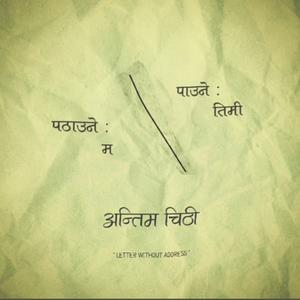 पाउने :
तिमी
पठाउने :
म
अन्तिम चिठी
" LETTER WITHOUT ADDRESS "